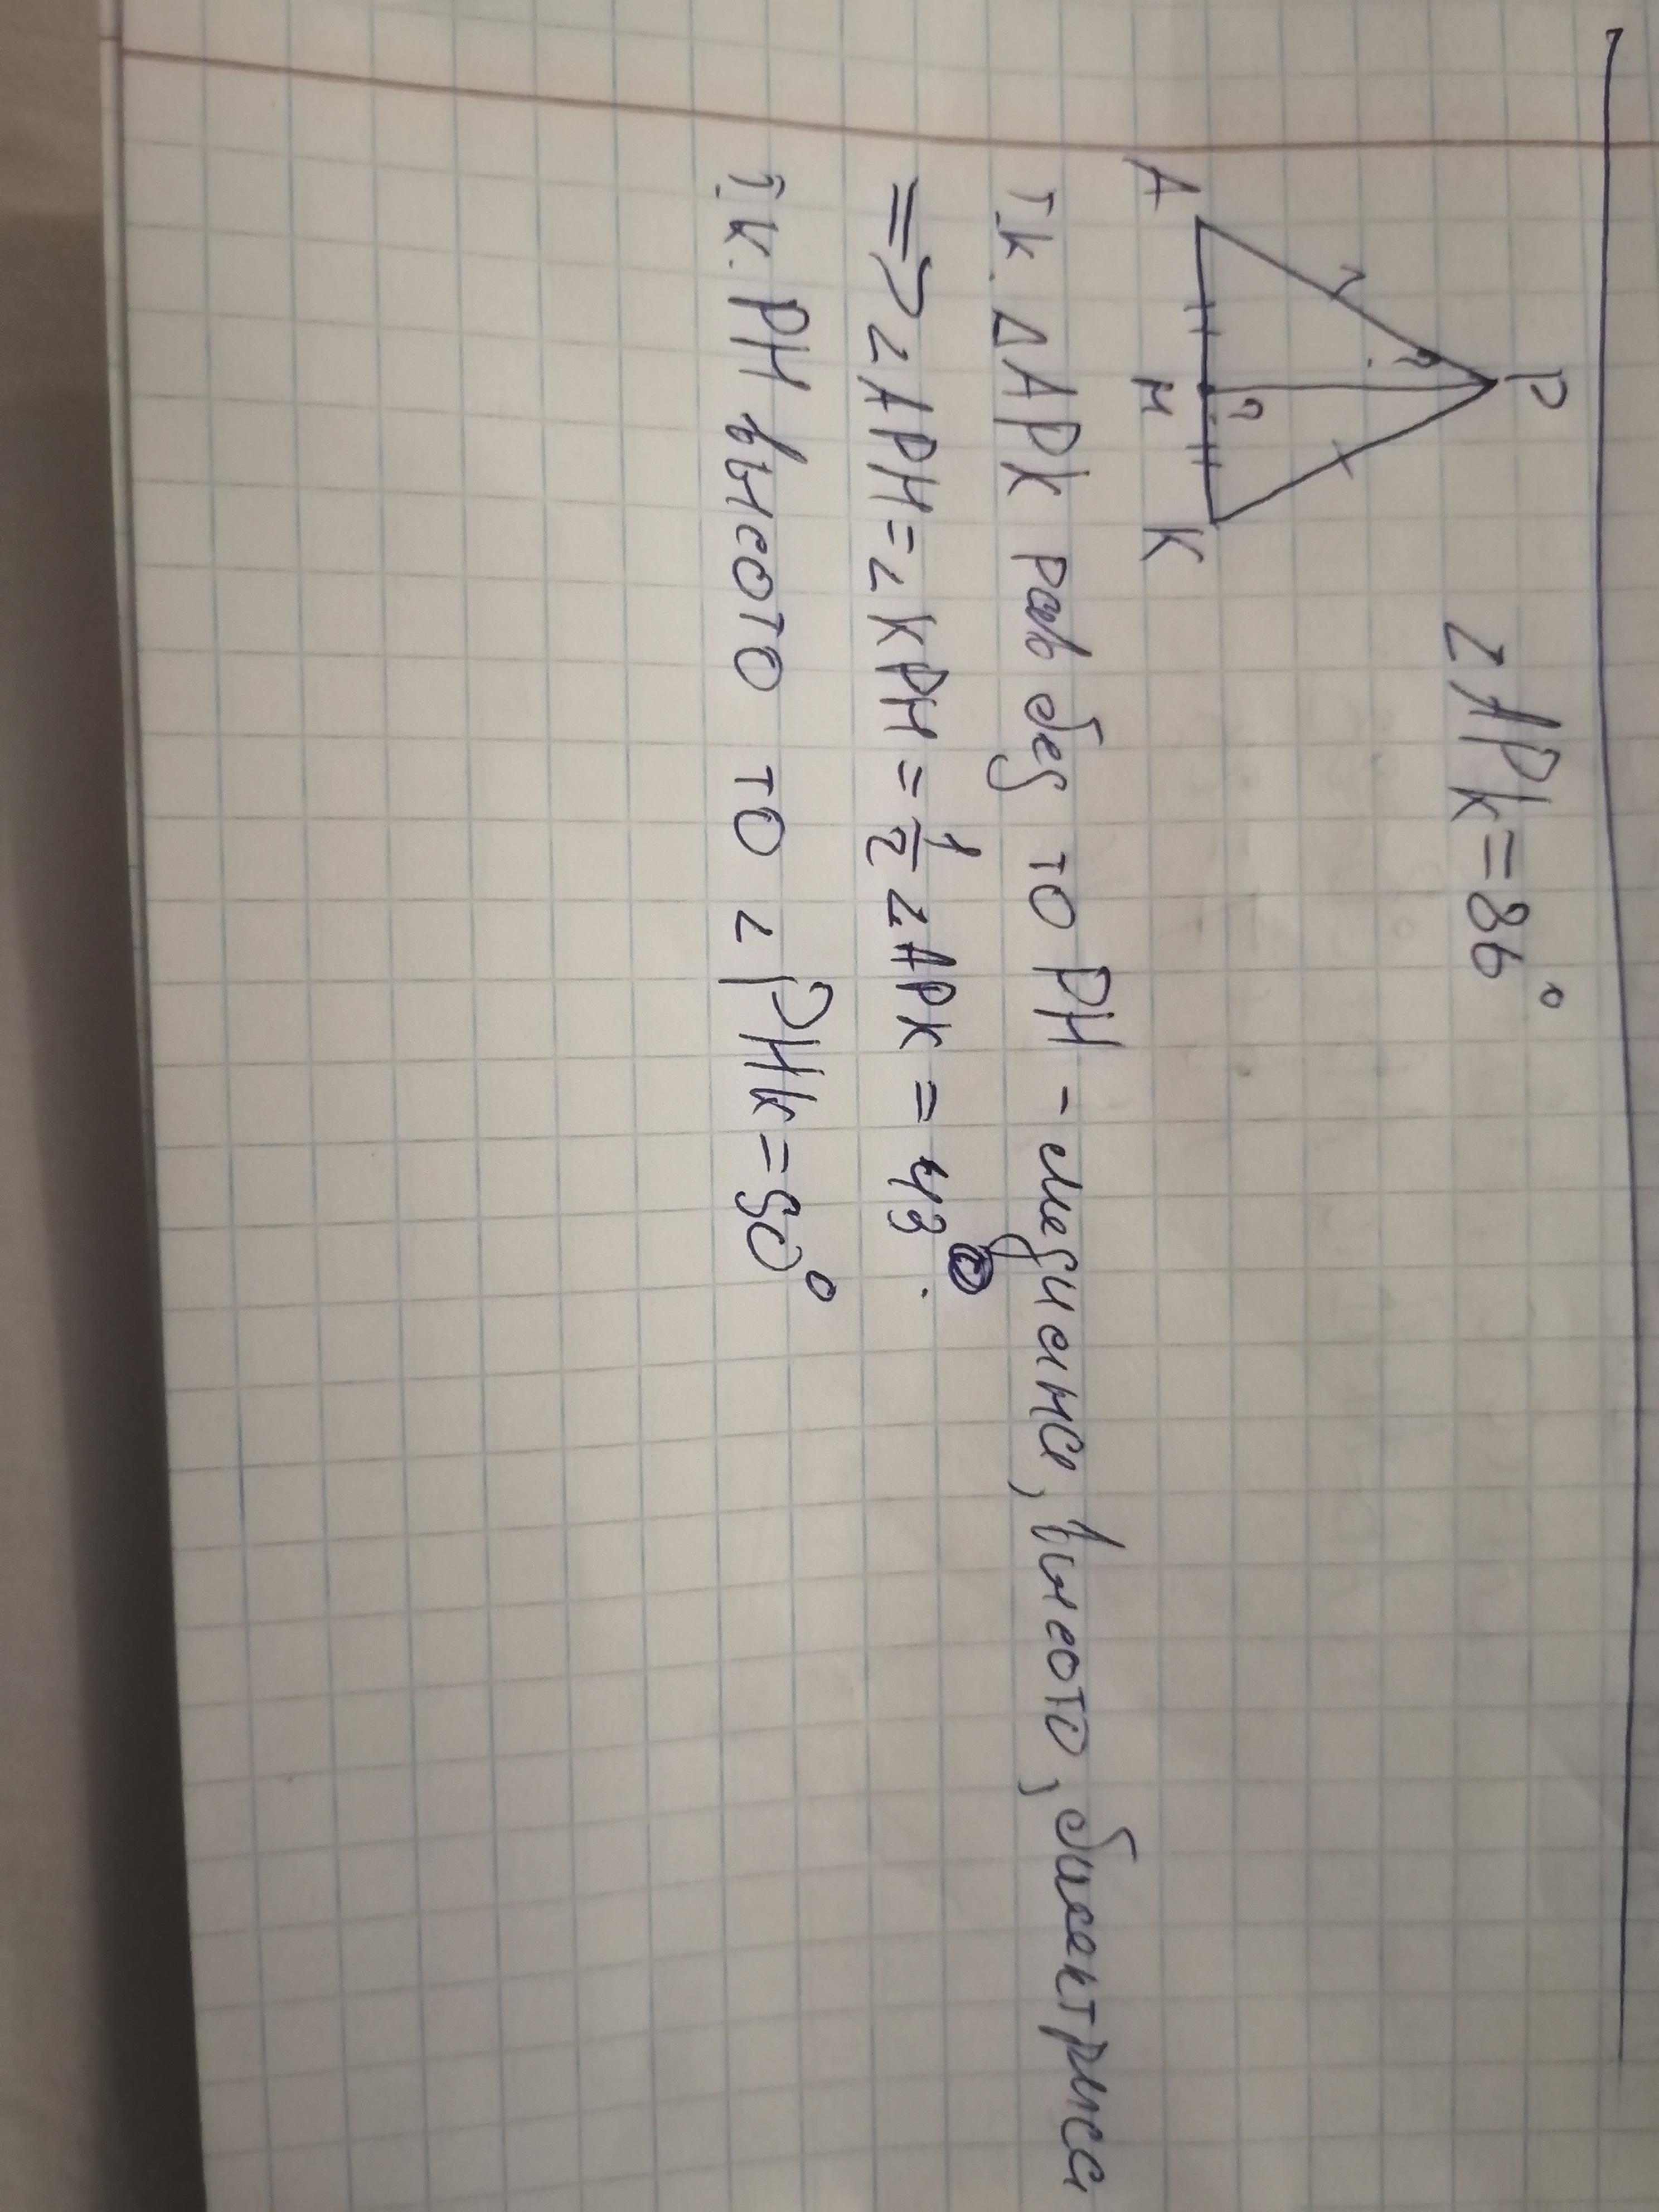 P
∠APK=86°
?
?
A
H
K
т.к. ΔAPK равбед то PH - медиана, высота, биссектриса
=> ∠APH=∠KPH=½∠APK=43
т.к. PH высота то ∠PHK=90°